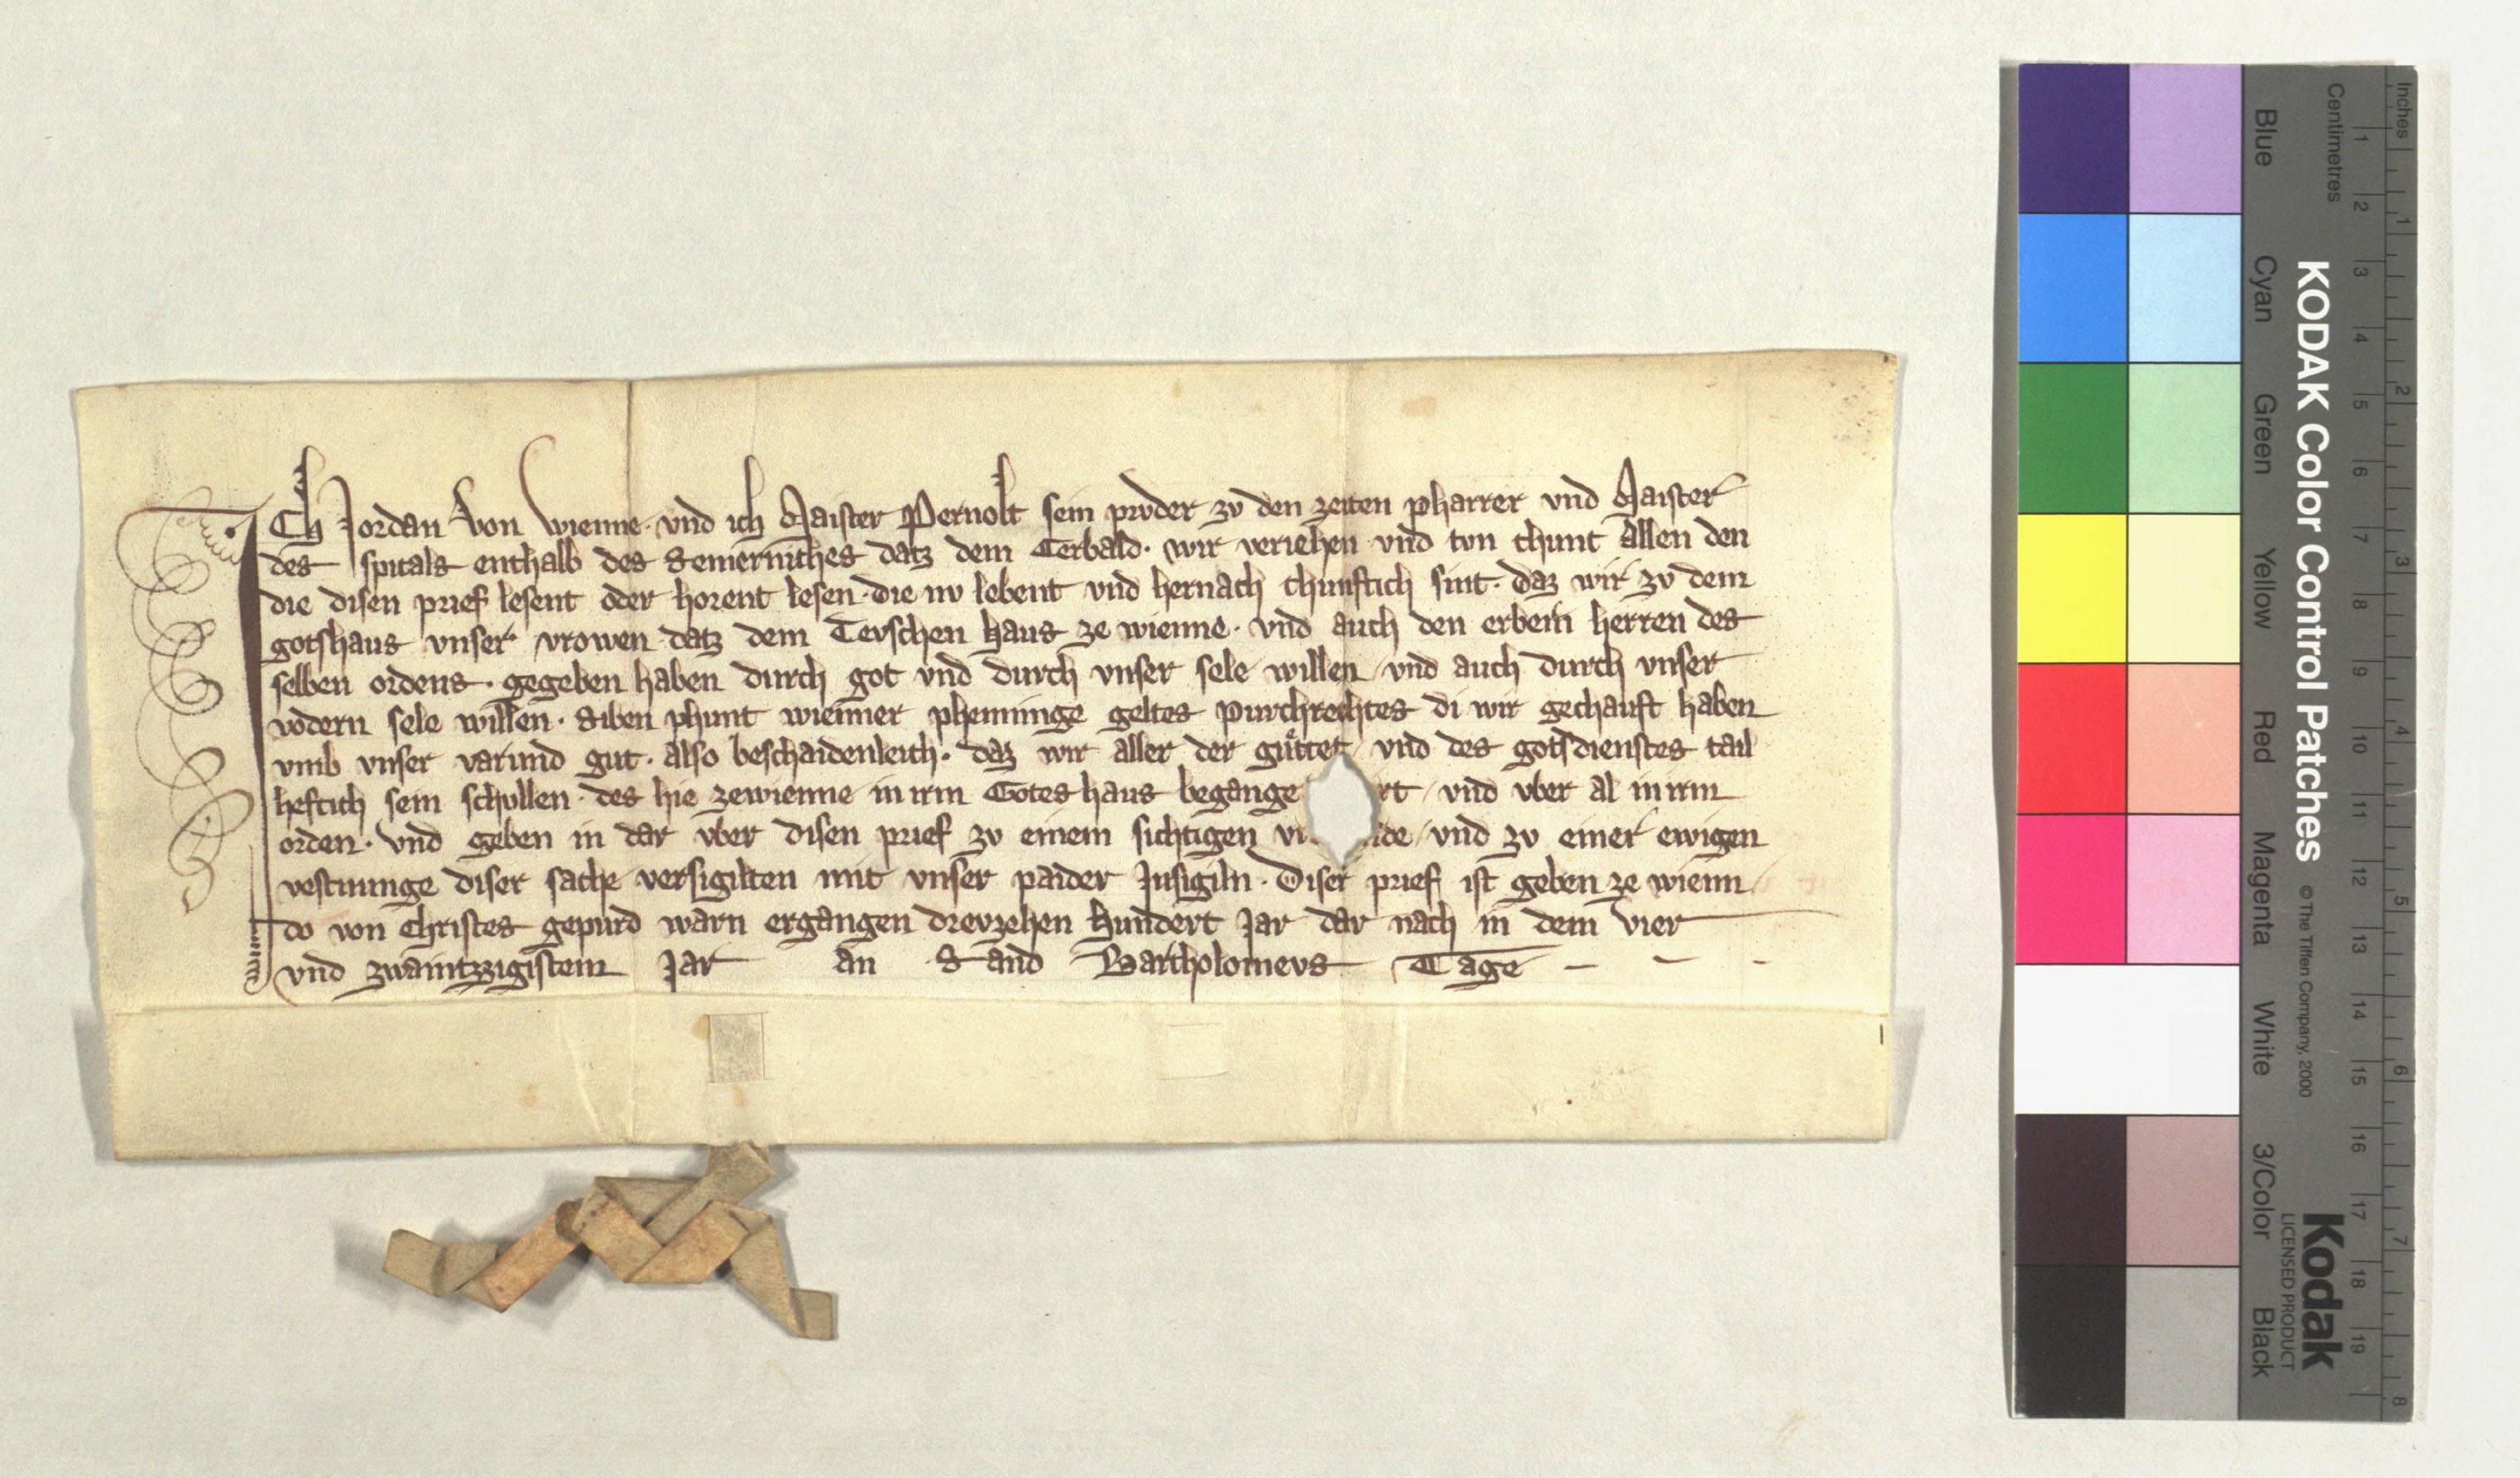 ICh Jordan von wienne· vnd ich Maister Pernolt sein prvder zv den zeiten pharrer vnd Maister
des spitals enthalb des Semerniches datz dem Cerbald· wir veriehen vnd tvn chunt allen den
die disen prief lesent oder horent lesen· die nv lebent vnd hernach chunftich sint· daz wir zv dem
gotshaus vnser vrowen datz dem Tevschen Haus ze wienne· vnd auch den erbern herren des
selben ordens· gegeben haben durch got vnd durch vnser sele willen / vnd auch durch vnser
vodern sele willen· siben phunt wienner phenninge geltes purchrechtes di wir gechauft haben
vmb vnser varund gut· also beschaidenleich· daz wir aller der gutter / vnd des gotsdienstes tail
heftich sein schvllen· des hie zewienne in irm Gotes haus begange rt / vnd vber al in irm
orden· vnd geben in dar vber disen prief zv einem sichtigen de / vnd zv einer ewigen
vestnunge diser sache versigilten mit vnser paider Insigiln· Diser prief ist geben ze wienn
do von Christes gepurd warn ergangen drevzehen Hundert Jar dar nach in dem vier
vnd zwaintzzigistem Jar an Sand Bartholomevs Tage
Inches
Centimetres
1 2 3 4 5 6 7 8 9 10 11 12 13 14 15 16 17 18 19
1 2 3 4 5 6 7 8
KODAK Color Control Patches © The Tiffen Company, 2000
Kodak
LICENSED PRODUCT
Blue Cyan Green Yellow Red Magenta White 3/Color Black